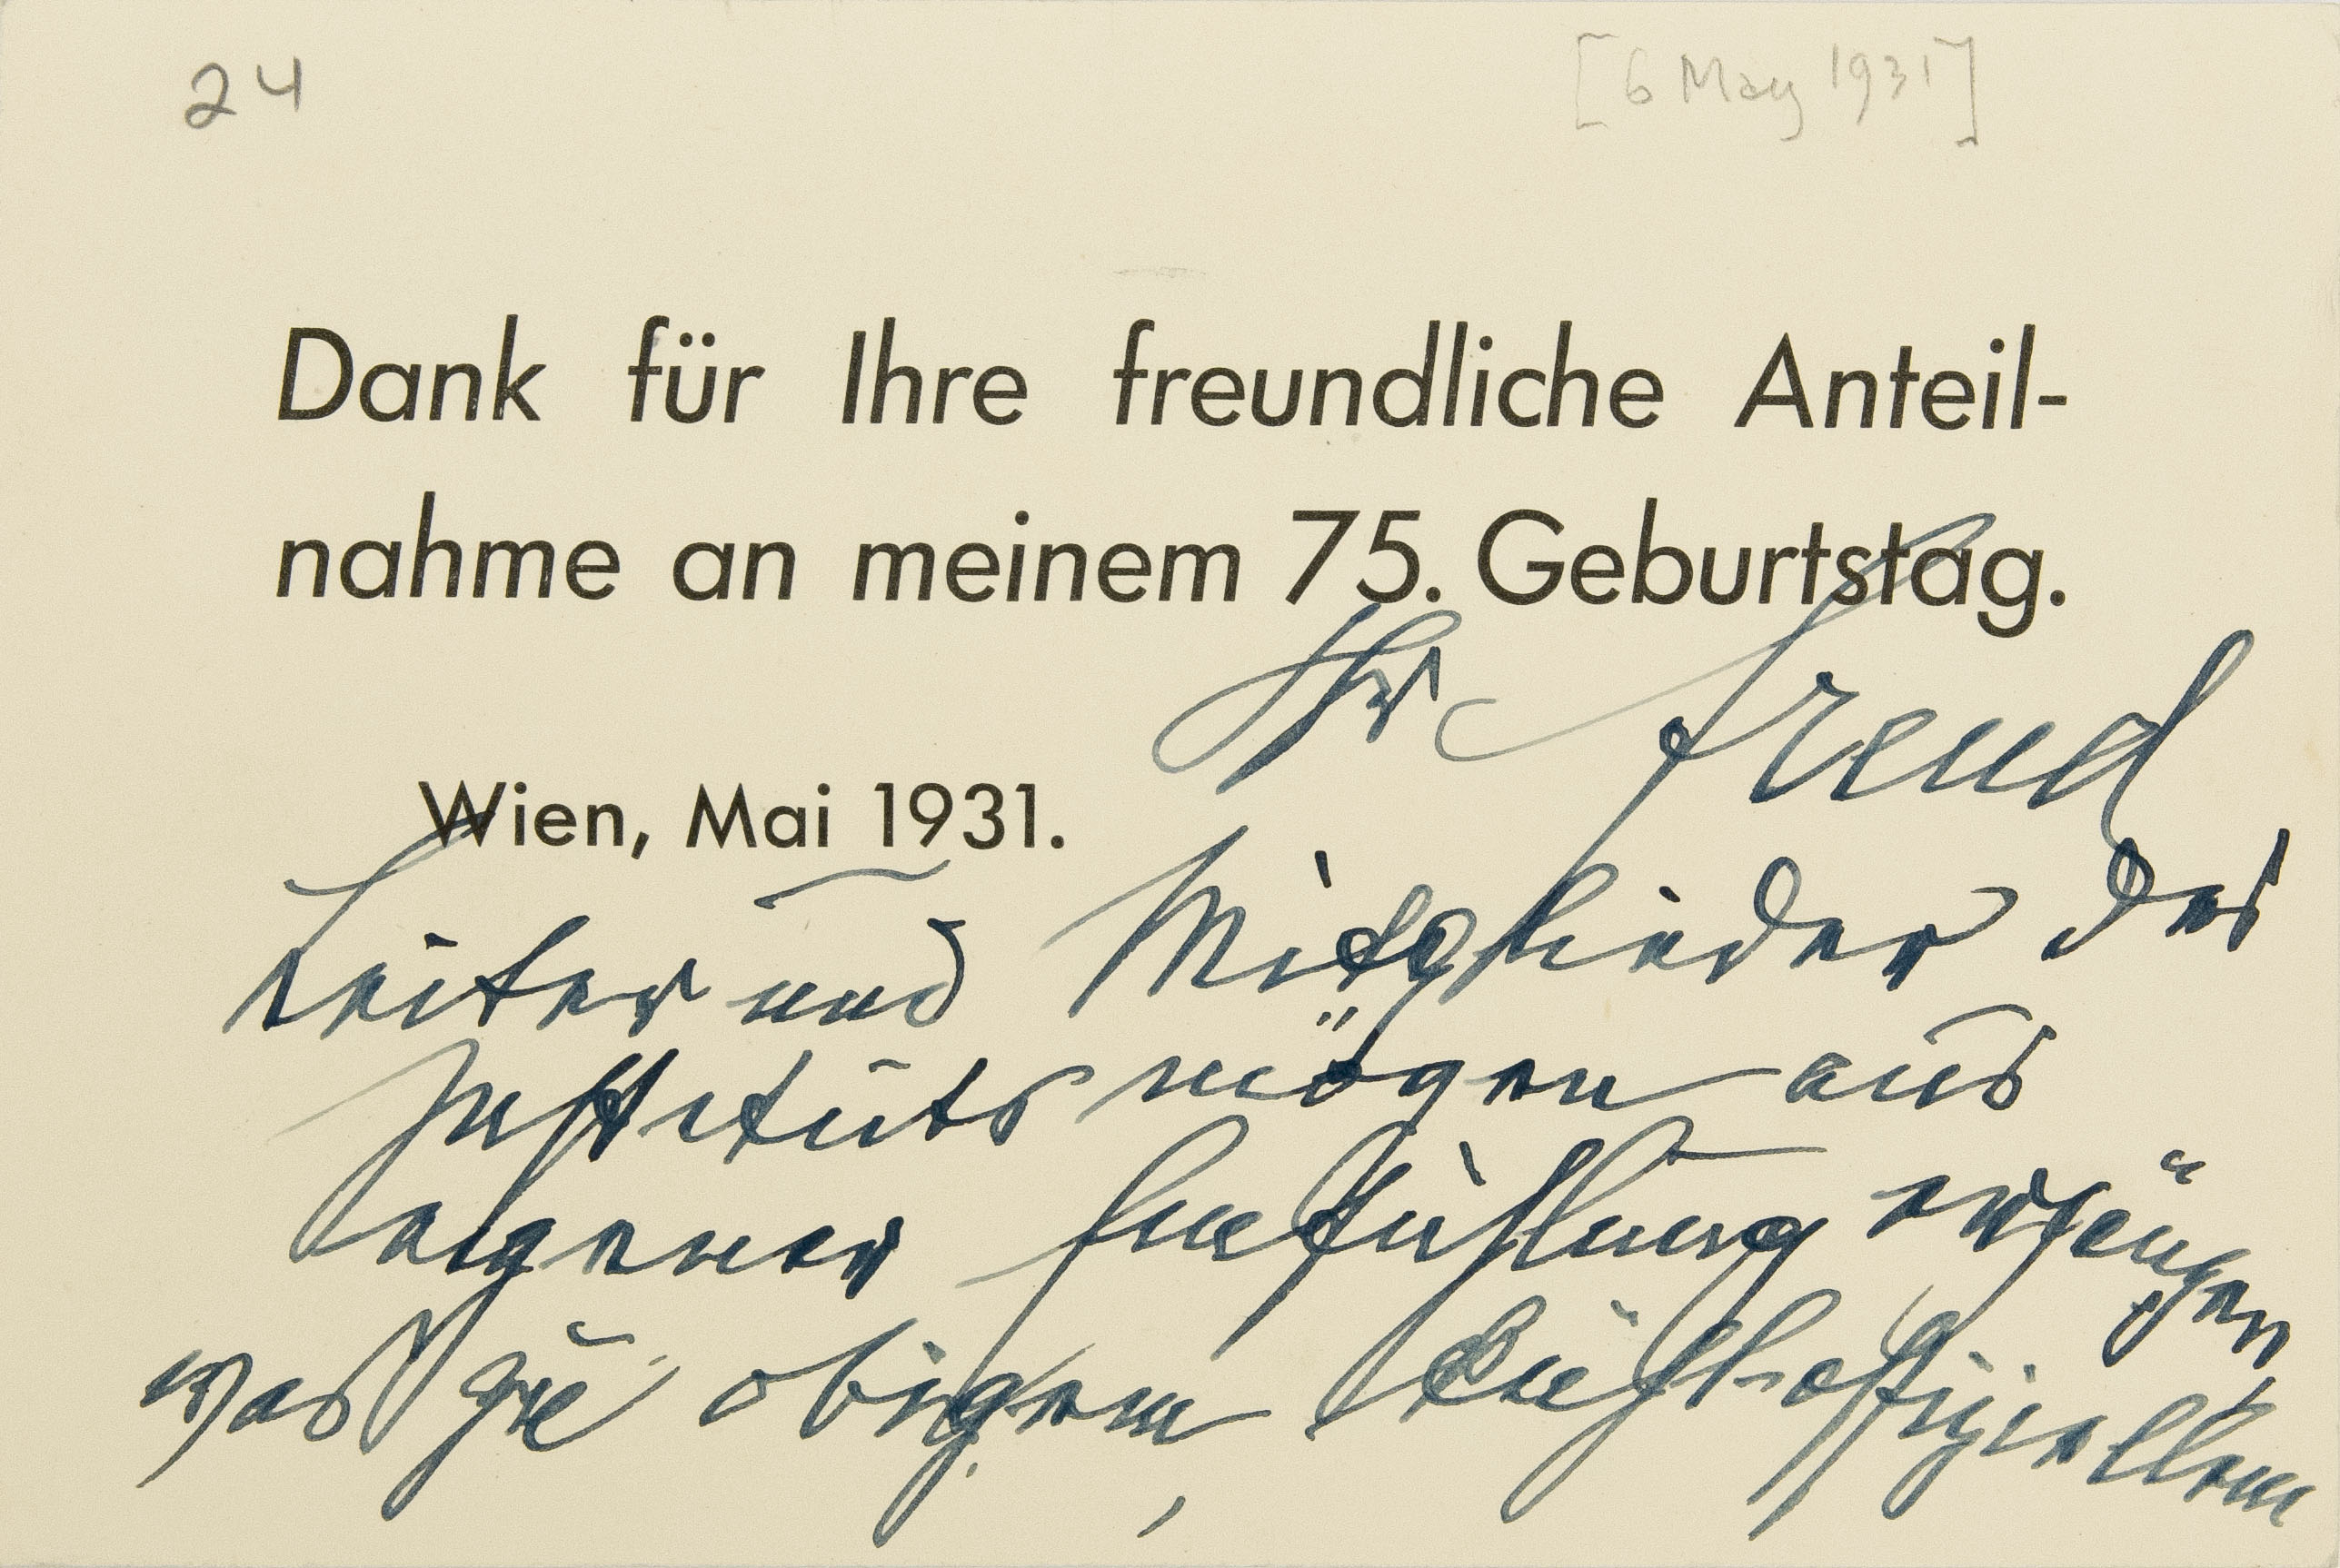 24 [6 May 1931]
Dank für Ihre freundliche Anteil-
nahme an meinem 75. Geburtstag.
Ihr Freud
Wien, Mai 1931.
Leiter und Mitglieder des
Instituts mögen aus
eigener Einfühlung ergänzen
was zu obigem offiziellem